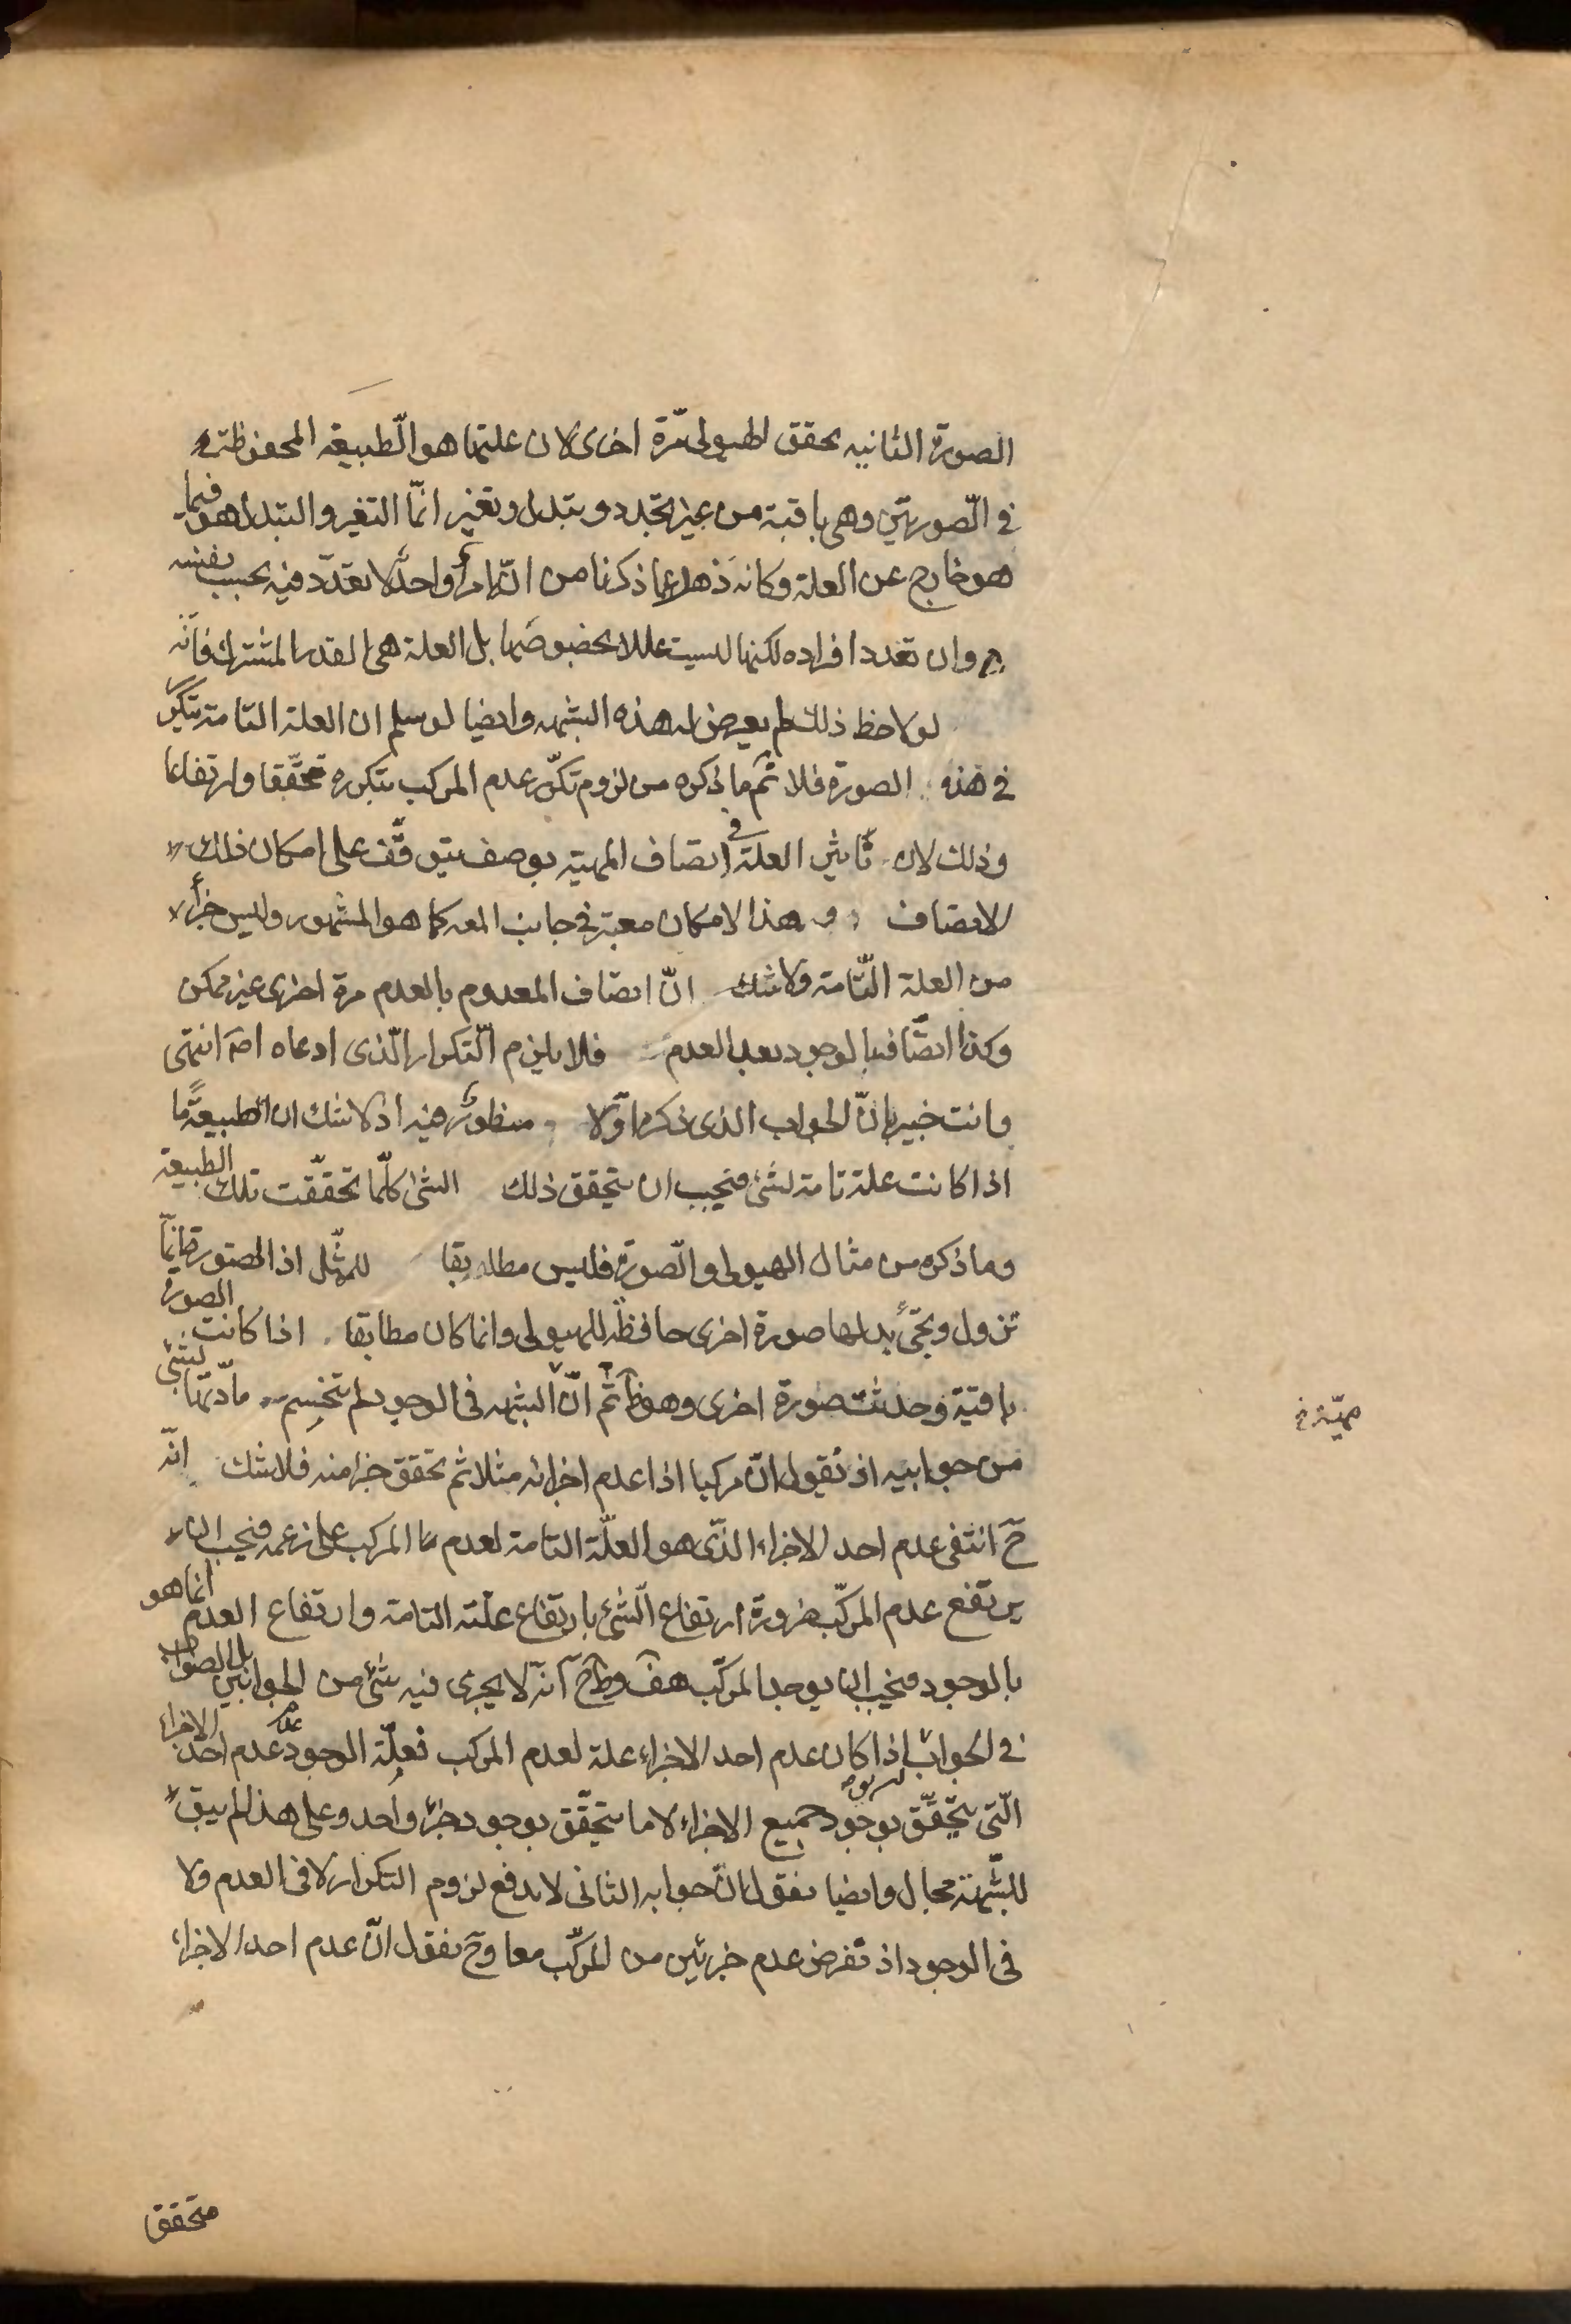 الصورة الثانيه تحقق الهيولى مرّة اخرى لان علتها هو الطبيعة المحفوظة
في الصورتين وهى باقية من غير تجدد وتبدل وتغير انّما التغير والتبدل هو فيما
هو خارج عن العلة وكانه ذهل عما ذكرنا من انّ امراً واحدٌ لا تعدّد فيه بحسب نفسه
وان تعدد افراده لكنها ليست عللا بخصوصها بل العلة هى القدر المشترك فانّه
لو لاحظ ذلك لم يعرض له هذه الشبهه وايضا لو سلم ان العلة التامة يتكرّر
في هذه الصورة فلا ثم ما ذكره من لزوم تكرّر عدم المركب بتكرره تحقّقا وارتفاعا
وذلك لان تأثير العلة في اتصاف المهية بوصف يتوقّف على امكان ذلك
الاتصاف و هذا الامكان معتبر في جانب المعه كما هو المشهور وليس جزأ
من العلة التّامة ولا شك انّ اتصاف المعدوم بالعدم مرة اخرى غير ممكن
وكذا اتصافه بالوجود بعد العدم فلا يلزم التّكرار الّذى ادعاه اصه انتهى
وانت خبير بانّ الجواب الذى ذكره اوّلا منظورٌ فيه اذ لا شك ان الطبيعة ما
اذا كانت علة تامة لشئ فيجب ان يتحقق ذلك الشئ كلّما تحقّقت تلك الطبيعة
وما ذكره من مثال الهيولى والصورة فليس مطابقا للمثّل اذ الصورة انّما
تزول وتجئ بدلها صورة اخرى حافظة للهيولى وانما كان مطابقا اذا كانت الصورة
باقية وحدثت صورة اخرى وهو ظ ثمّ انّ الشبهه في الوجود لم تنحسم مادّتها بشئ
من جوابيه اذ نقول انّ مركبا اذا عدم اجزائه مثلا ثم تحقق جزء منه فلا شك انّه
ح انتفى عدم احد الاجزاء الذّى هو العلّة التامة لعدم المركب على زعمه فيجب ان
يرتفع عدم المركّب ضرورة ارتفاع الشئ بارتفاع علّته التامة وارتفاع العدم انما هو
بالوجود فيجب ان يوجد المركّب هف وظ ح انّه لا يجرى فيه شئ من الجوابين بل الصواب
في الجواب اذا كان عدم احد الاجزاء علة لعدم المركب فعلّة الوجود عدم عدم احد الاجزاء
الّتى يتحقّق بوجود جميع الاجزاء لا ما يتحقّق بوجود جزء واحد وعلى هذا لم يبق
للشّبهة مجال وايضا نقول انّ جوابه الثانى لا يدفع لزوم التكرار لا في العدم ولا
في الوجود اذ نفرض عدم جزئين من المركّب معا وح نقول انّ عدم احد الاجزاء
متحقق